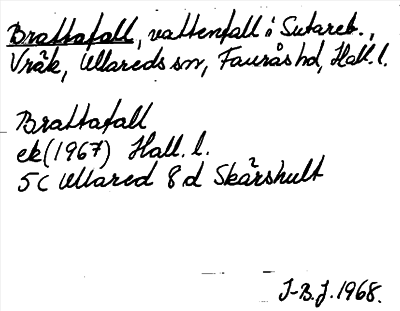 Brattafall, vattenfall i Sutareb.,
Vråk, Ullareds sn, Faurås hd, Hall. l.
Brattafall
ek (1967) Hall. l.
5C Ullared 8 d Skärshult
J-B.J. 1968.